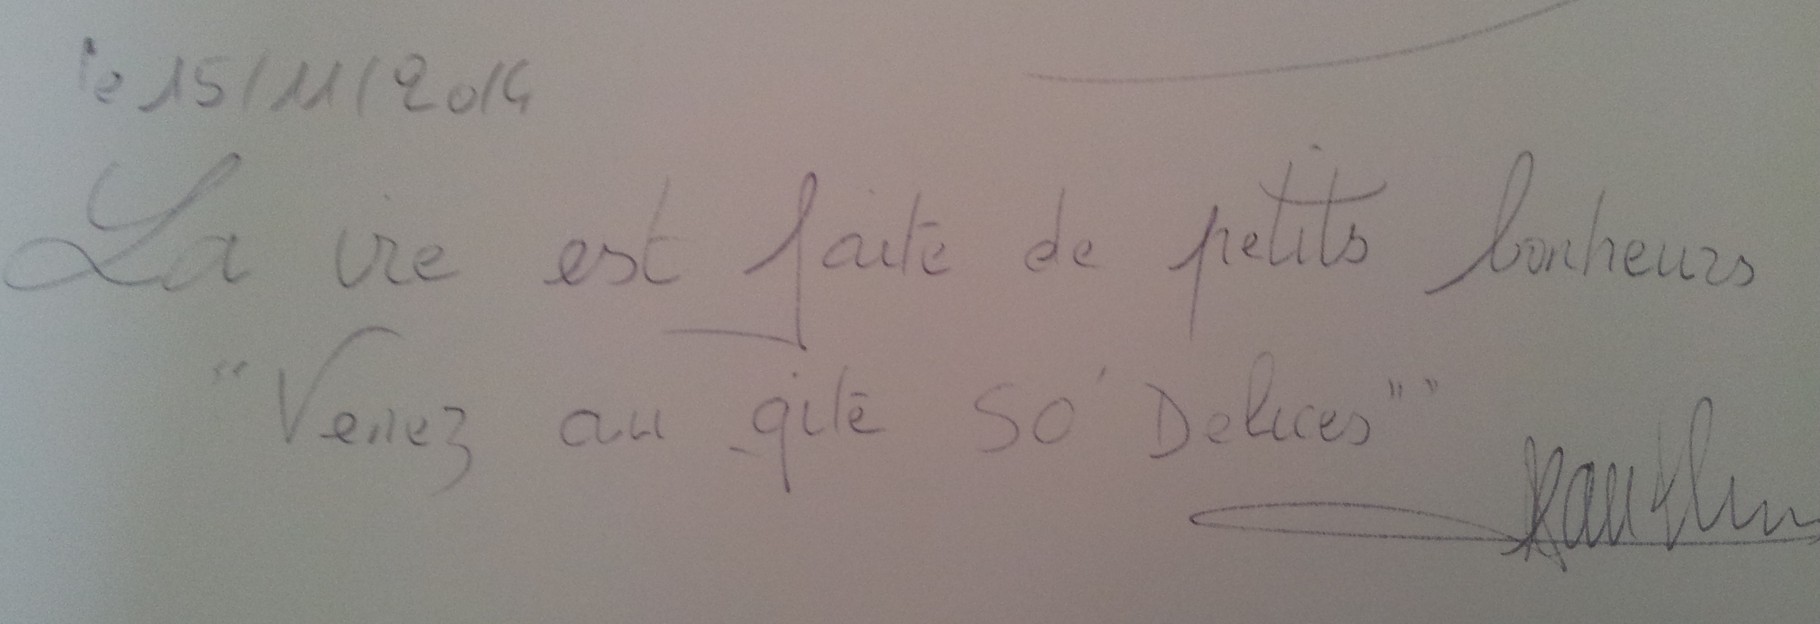 le 15/11/2014
La vie est faite de petits bonheurs
"Venez au gite SO' Delices""